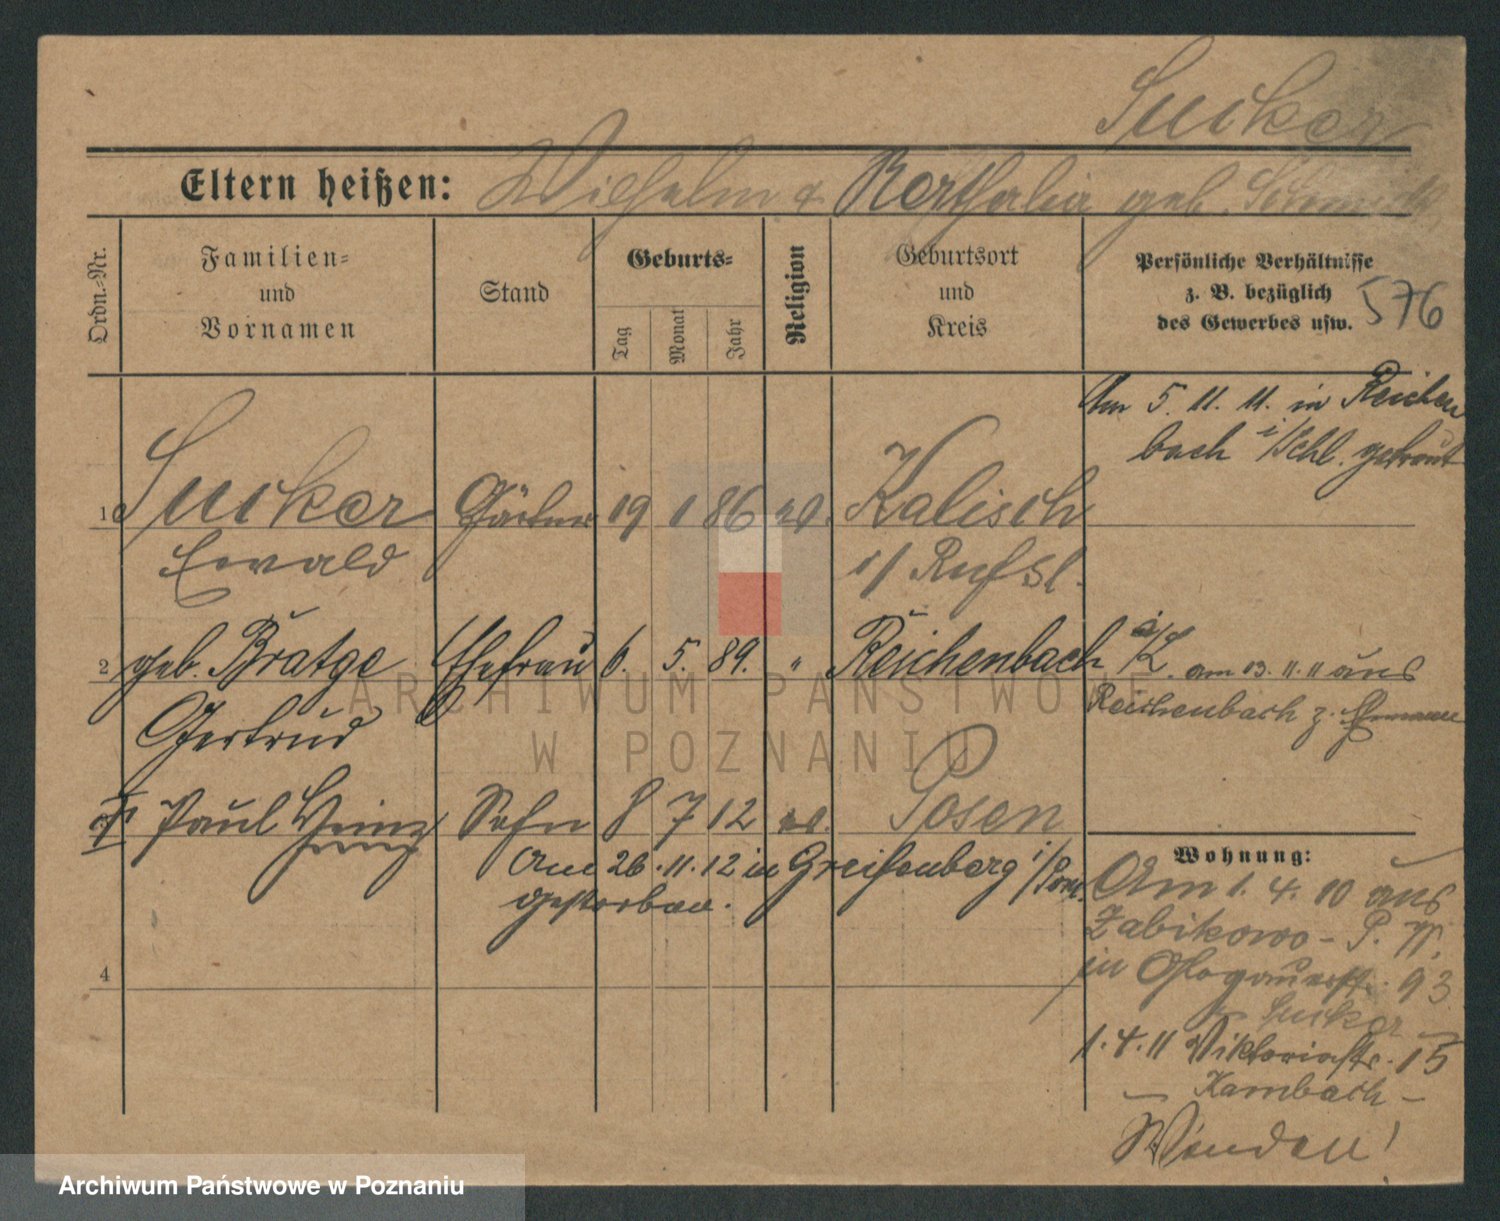 Sucker
Eltern heißen: Wilhelm & geb.
Ordn.=Nr.
Familien=
und
Vornamen
Stand
Geburts=
Tag
Monat
Jahr
Religion
Geburtsort
und
Kreis
Persönliche Verhältnisse
z. B. bezüglich
des Gewerbes usw.
576
Am 5. 11. 11. in Reichen
bach i/Schl. getraut
1 Sucker Gärtner 19 1 86 ev. Kalisch
Ewald i/ Rußl.
2 geb. Bratge Ehefrau 6. 5. 89. " Reichenbach i/ am 13. 11. 11 aus
Gertrud Reichenbach z. Ehemann
Paul Heinz Sohn 8 7 12 ev. Posen
Am 26. 11. 12 in Greifenberg i/Pom.
gestorben.
4
Wohnung:
Am 1. 4. 10 aus
Zabikowo - P. W.
in Glogauerstr. 93
Sucker
1. 4. 11 Viktoriastr. 15
- Kambach -
ARCHIWUM PAŃSTWOWE
W POZNANIU
Archiwum Państwowe w Poznaniu